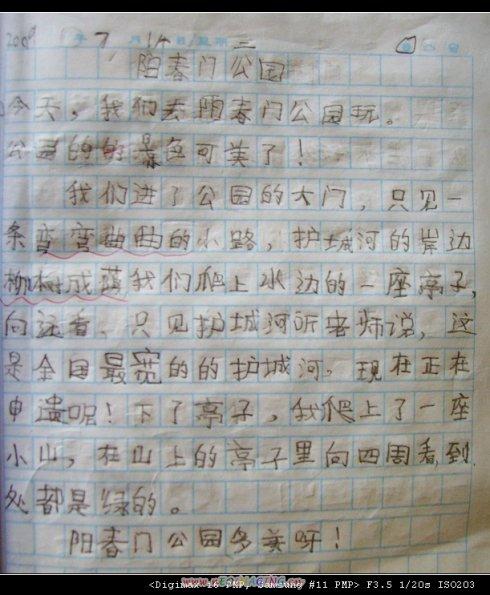 7 14 三
阳春门公园
今天，我们去阳春门公园玩。
公园的的景色可美了！
我们进了公园的大门，只见一
条弯弯曲曲的小路，护城河的岸边
柳树成荫我们爬上水边的一座亭子，
向远看，只见护城河听老师说，这
是全国最宽的的护城河。现在正在
申遗呢！下了亭子，我爬上了一座
小山，在山上的亭子里向四周看，到
处都是绿的。
阳春门公园多美呀！
<Digimax i6 PMP, Samsung #11 PMP> F3.5 1/20s ISO203